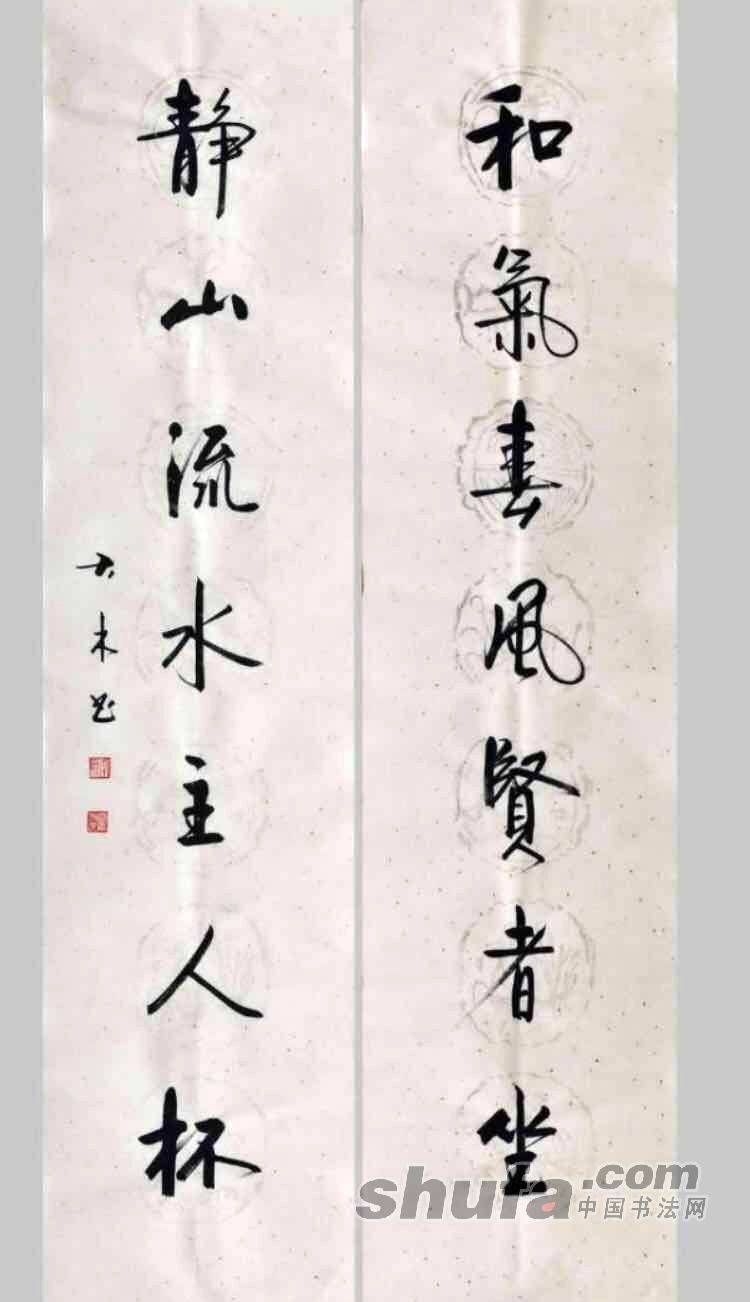 和氣春風賢者坐
靜山流水主人杯
大木书
shufa.com
中国书法网